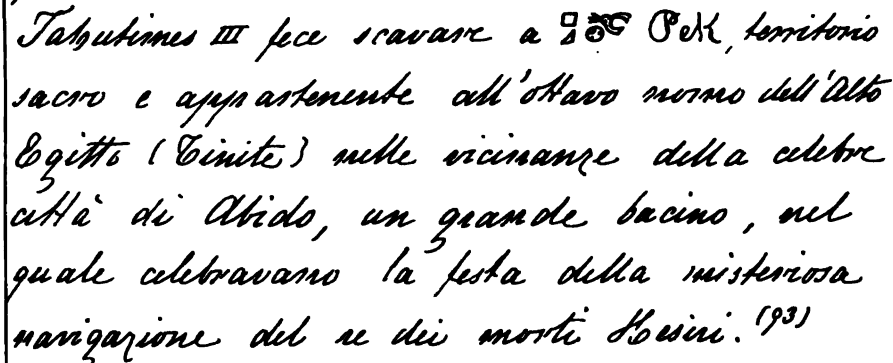 Tahutimes III fece scavare a PeK, territorio
sacro e appartenente all'ottavo nomo dell'Alto
Egitto (Tinite) nelle vicinanze della celebre
città di Abido, un grande bacino, nel
quale celebravano la festa della misteriosa
navigazione del re dei morti Hesiri. (93)